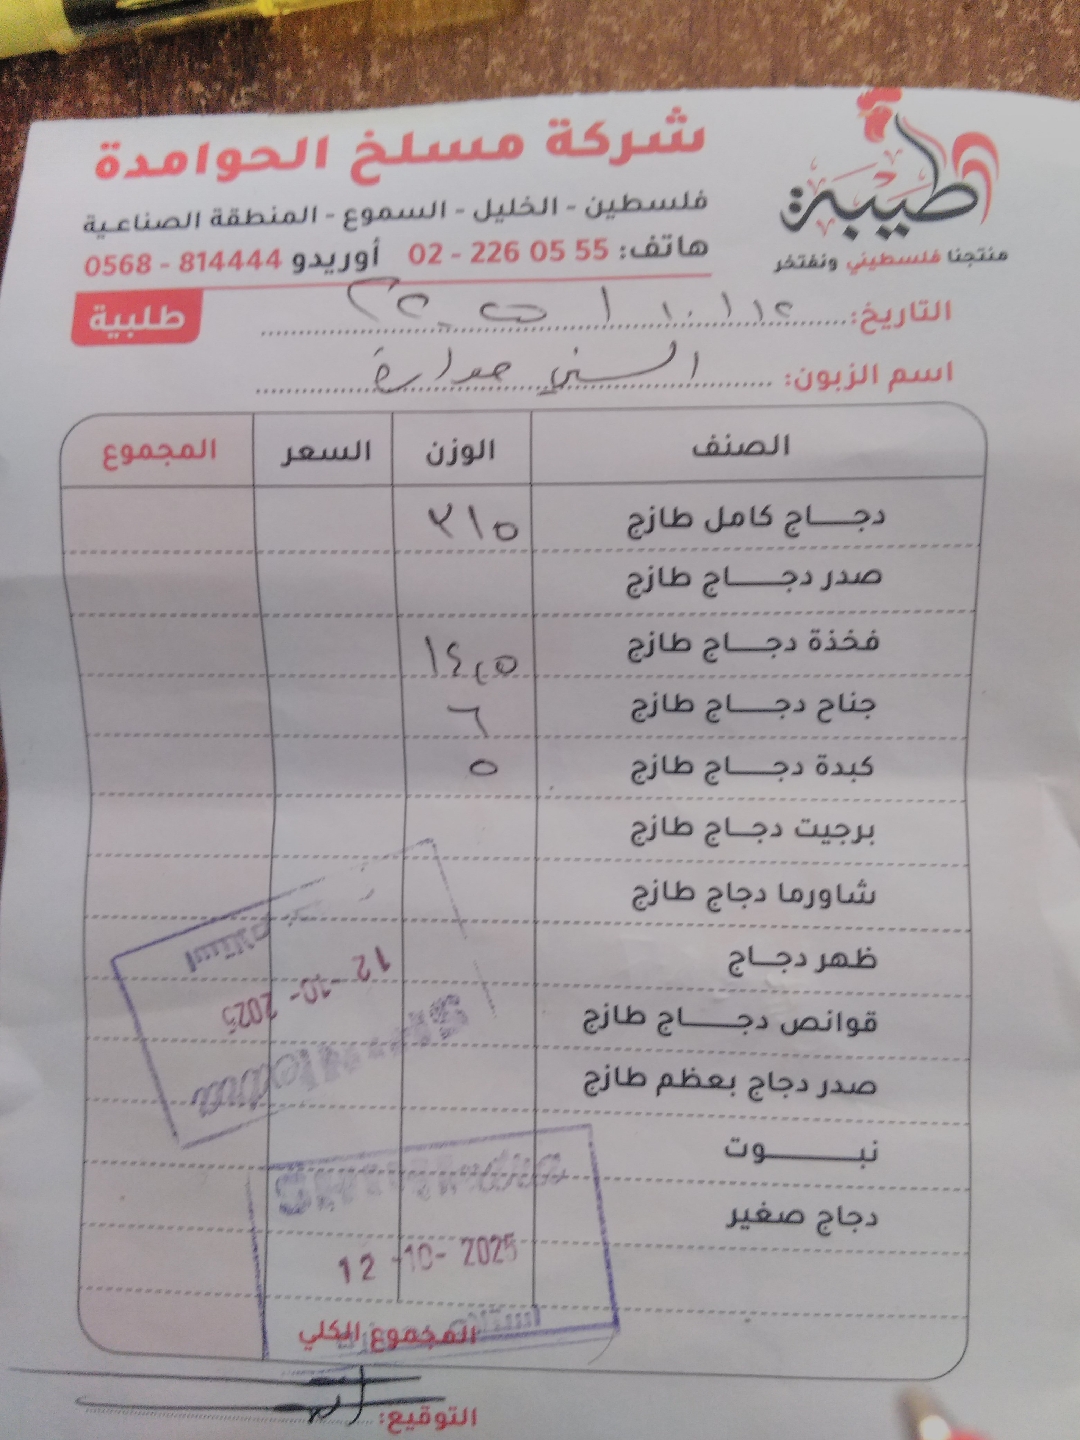 طيبة
منتجنا فلسطيني ونفتخر
شركة مسلخ الحوامدة
فلسطين - الخليل - السموع - المنطقة الصناعية
هاتف: 55 05 226 - 02 أوريدو 814444 - 0568
طلبية
التاريخ:
اسم الزبون:
الصنف الوزن السعر المجموع
دجاج كامل طازج ٢١٥
صدر دجاج طازج
فخذة دجاج طازج ١٤,٥
جناح دجاج طازج ٦
كبدة دجاج طازج ٥
برجيت دجاج طازج
شاورما دجاج طازج
ظهر دجاج
قوانص دجاج طازج
صدر دجاج بعظم طازج
نبوت
دجاج صغير
استلام
12 -10- 2025
12 -10- 2025
المجموع الكلي
التوقيع: